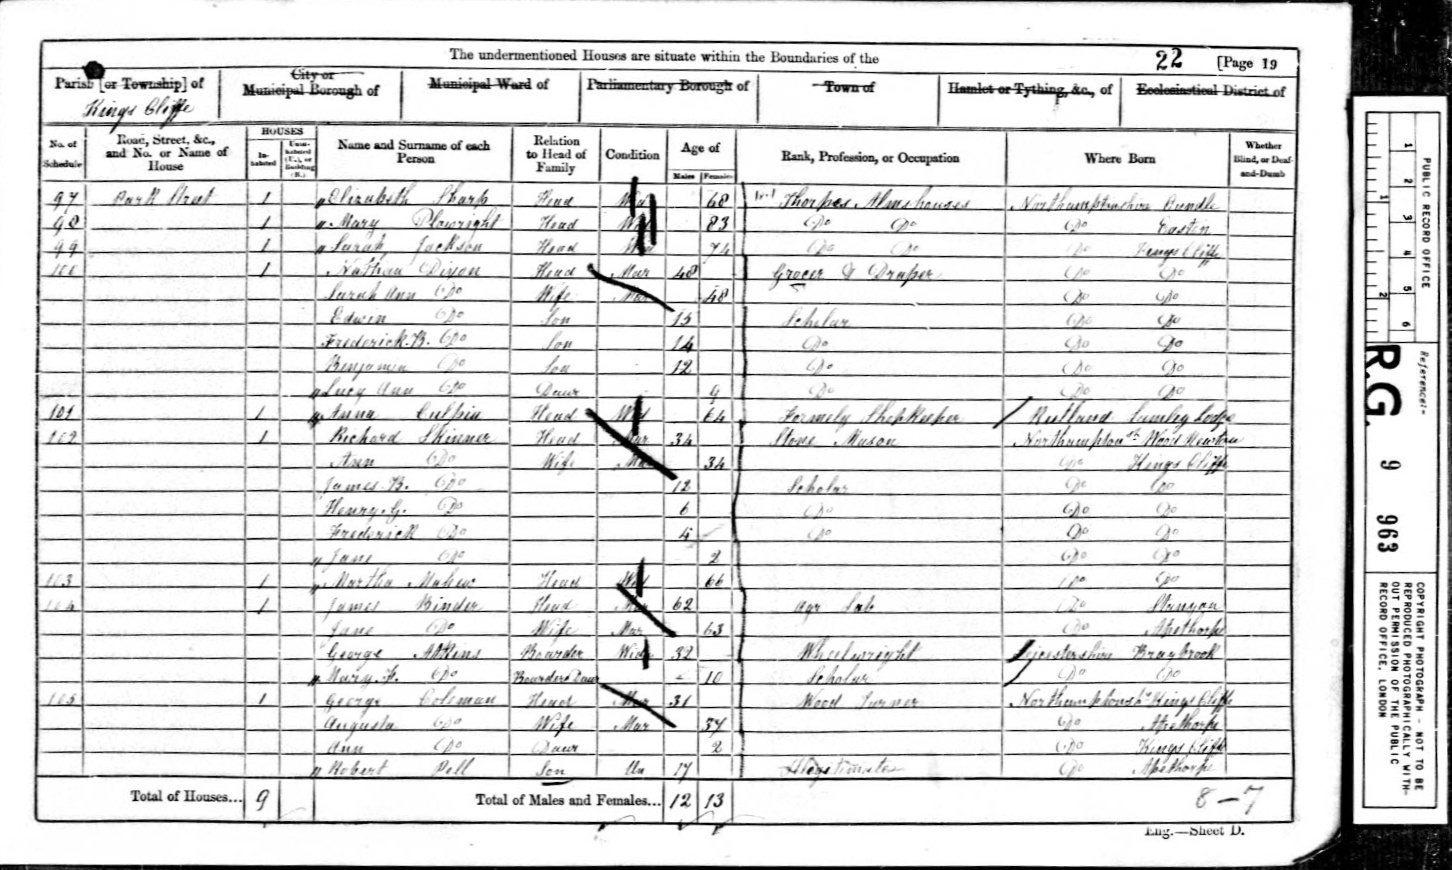 The undermentioned Houses are situate within the Boundaries of the
22 [Page 19
Parish [or Township] of
City or Municipal Borough of
Municipal Ward of
Parliamentary Borough of
Town of
Hamlet or Tything, &c., of
Ecclesiastical District of
Kings Cliffe
No. of Schedule
Road, Street, &c., and No. or Name of House
HOUSES
In-habited
Unin-habited (U.), or Building (B.)
Name and Surname of each Person
Relation to Head of Family
Condition
Age of
Males
Females
Rank, Profession, or Occupation
Where Born
Whether Blind, or Deaf-and-Dumb
97 Park Street 1 Elizabeth Sharp Head 68 Thorpes Almshouses Northamptonshire Oundle
98 1 Mary Plowright Head 83 Do Do Do Easton
99 1 Sarah Jackson Head 74 Do Do Do Kings Cliffe
100 1 Nathan Dixon Head Mar 48 Grocer & Draper Do Do
Sarah Ann Do Wife Mar 48 Do Do
Edwin Do Son 15 Scholar Do Do
Frederick. B. Do Son 14 Do Do Do
Benjamin Do Son 12 Do Do Do
Lucy Ann Do Daur 9 Do Do Do
101 1 Anna Culpin Head Wid 64 Formely Shopkeeper Rutland Lodge
102 1 Richard Skinner Head Mar 34 Stone Mason Wood Newton
Ann Do Wife Mar 34 Do Kings Cliffe
James. B. Do 12 Scholar Do Do
Henry. G. Do 6 Do Do Do
Frederick Do 4 Do Do Do
Jane Do 2 Do Do
103 1 Martha Head Wid 66 Do Do
104 1 James Binder Head Mar 62 Agr Lab Do Stanyon
Jane Do Wife Mar 63 Do Apethorpe
George Atkins Boarder Widr 32 Wheelwright Leicestershire Braybrook
Mary. F. Do Boarders Daur 10 Scholar Do Do
105 1 George Coleman Head Mar 31 Wood Turner Kings Cliffe
Augusta Do Wife Mar 37 Do Apethorpe
Ann Do Daur 2 Do Kings Cliffe
Robert Pell Son Un 17 Illegitimate Do Apethorpe
Total of Houses... 9
Total of Males and Females... 12 13
8 - 7
Eng.—Sheet D.
PUBLIC RECORD OFFICE
1 2 3 4 5 6
1 2
Reference:-
R.G. 9 963
COPYRIGHT PHOTOGRAPH - NOT TO BE REPRODUCED PHOTOGRAPHICALLY WITH-OUT PERMISSION OF THE PUBLIC RECORD OFFICE, LONDON